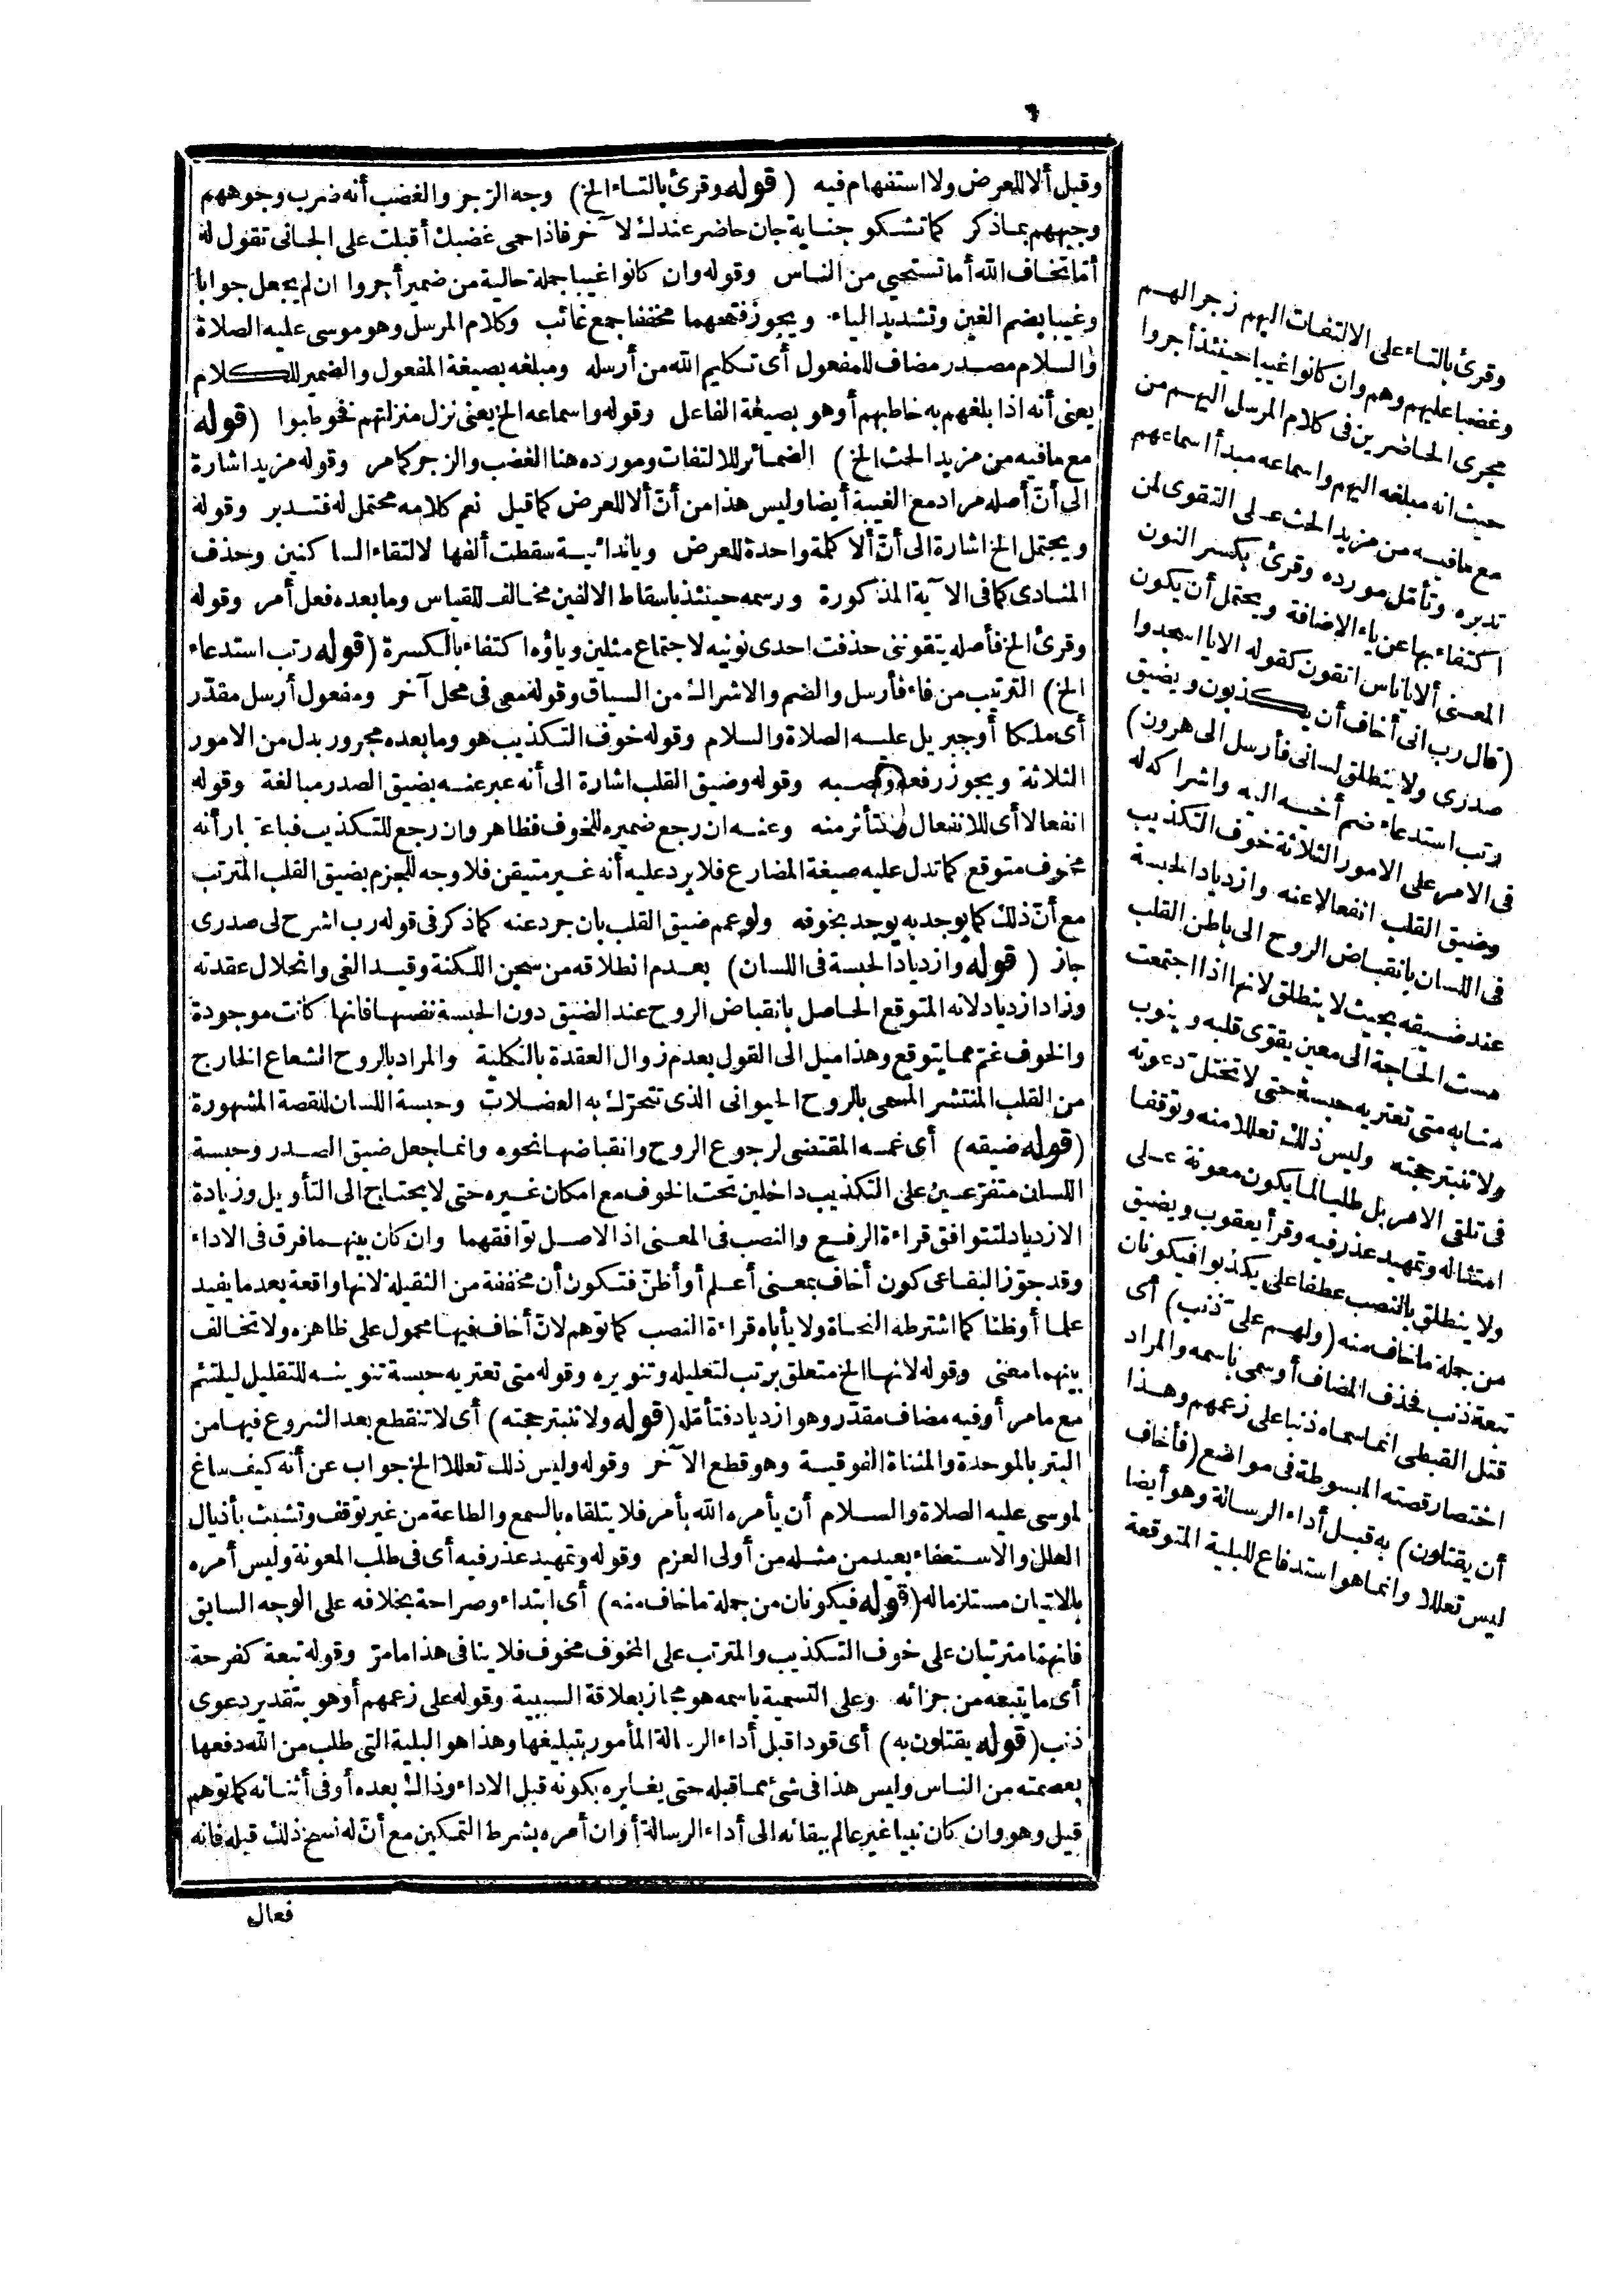 ٦
وقيل ألا للعرض ولا استفهام فيه (قوله وقرئ بالتاء الخ) وجه الزجر والغضب أنه ضرب وجوههم
وجبههم بما ذكر كما تشكو جناية جان حاضر عندك لا آخر فاذا حمى غضبك أقبلت على الجانى تقول له
أما تخاف الله أما تستحيى من الناس وقوله وان كانوا غيبا جملة حالية من ضمير أجروا ان لم يجعل جوابا
وغيبا بضم الغين وتشديد الياء ويجوز فتحهما مخففا جمع غائب وكلام المرسل وهو موسى عليه الصلاة
والسلام مصدر مضاف للمفعول أى تكليم الله من أرسله ومبلغه بصيغة المفعول والضمير للكلام
يعنى أنه اذا بلغهم به خاطبهم أو هو بصيغة الفاعل وقوله واسماعه الخ يعنى نزل منزلتهم فخوطبوا (قوله
مع ما فيه من مزيد الحث الخ) الضمائر للالتفات ومورده هنا الغضب والزجر كما مر وقوله مزيد اشارة
الى أنّ أصله مراد مع الغيبة أيضا وليس هذا من أنّ ألا للعرض كما قيل نعم كلامه محتمل له فتدبر وقوله
ويحتمل الخ اشارة الى أنّ ألا كلمة واحدة للعرض ويا ندائية سقطت ألفها لالتقاء الساكنين وحذف
المنادى كما فى الآية المذكورة ورسمه حينئذ باسقاط الالفين مخالف للقياس وما بعده فعل أمر وقوله
وقرئ الخ فأصله يتقوننى حذفت احدى نونيه لاجتماع مثلين وياؤه اكتفاء بالكسرة (قوله رتب استدعاء
الخ) الترتيب من فاء فأرسل والضم والاشراك من السياق وقوله معى فى محل آخر ومفعول أرسل مقدّر
أى ملكا أو جبريل عليه الصلاة والسلام وقوله خوف التكذيب هو وما بعده مجرور بدل من الامور
الثلاثة ويجوز رفعه ونصبه وقوله وضيق القلب اشارة الى أنه عبر عنه بضيق الصدر مبالغة وقوله
انفعالا أى للانفعال والتأثر منه وعنه ان رجع ضميره للخوف فظاهر وان رجع للتكذيب فباعتبار أنه
مخوف متوقع كما تدل عليه صيغة المضارع فلا يرد عليه أنه غير متيقن فلا وجه للجزم بضيق القلب المترتب
مع أنّ ذلك كما يوجد به يوجد بخوفه ولو عمم ضيق القلب بان جرد عنه كما ذكر فى قوله رب اشرح لى صدرى
جاز (قوله وازدياد الحبسة فى اللسان) بعدم انطلاقه من سجن اللكنة وقيد العى وانحلال عقدته
وزاد ازدياد لانه المتوقع الحاصل بانقباض الروح عند الضيق دون الحبسة نفسها فانها كانت موجودة
والخوف غمّ مما يتوقع وهذا ميل الى القول بعدم زوال العقدة بالكلية والمراد بالروح الشعاع الخارج
من القلب المنتشر المسمى بالروح الحيوانى الذى تتحرّك به العضلات وحبسة اللسان للقصة المشهورة
(قوله ضيقه) أى غمه المقتضى لرجوع الروح وانقباضها نحوه وانما جعل ضيق الصدر وحبسة
اللسان متفرّعين على التكذيب داخلين تحت الخوف مع امكان غيره حتى لا يحتاج الى التأويل وزيادة
الازدياد لتتوافق قراءة الرفع والنصب فى المعنى اذ الاصل توافقهما وان كان بينهما فرق فى الاداء
وقد جوّز البقاعى كون أخاف بمعنى أعلم أو أظنّ فتكون أن مخففة من الثقيلة لانها واقعة بعد ما يفيد
علما أو ظنا كما اشترطه النحاة ولا يأباه قراءة النصب كما توهم لانّ أخاف فيها محمول على ظاهره ولا تخالف
بينهما معنى وقوله لانها الخ متعلق برتب لتعليله وتنويره وقوله متى تعتريه حبسة تنوينه للتقليل ليلتئم
مع ما مر أو فيه مضاف مقدّر وهو ازدياد فتأمّله (قوله ولا تنبتر حجته) أى لا تنقطع بعد الشروع فيها من
البتر بالموحدة والمثناة الفوقية وهو قطع الآخر وقوله وليس ذلك تعللا الخ جواب عن أنه كيف ساغ
لموسى عليه الصلاة والسلام أن يأمره الله بأمر فلا يتلقاه بالسمع والطاعة من غير توقف وتشبث بأذيال
العلل والاستعفاء بعيد من مثله من أولى العزم وقوله وتمهيد عذر فيه أى فى طلب المعونة وليس أمره
بالاتيان مستلزما له (قوله فيكونان من جملة ما خاف منه) أى ابتداء وصراحة بخلافه على الوجه السابق
فانهما مترتبان على خوف التكذيب والمترتب على المخوف مخوف فلا ينافى هذا ما مرّ وقوله تبعة كفرحة
أى ما يتبعه من جزائه وعلى التسمية باسمه هو مجاز بعلاقة السببية وقوله على زعمهم أو هو بتقدير دعوى
ذنب (قوله يقتلون به) أى قودا قبل أداء الرسالة المأمور بتبليغها وهذا هو البلية التى طلب من الله دفعها
بعصمته من الناس وليس هذا فى شئ مما قبله حتى يغايره بكونه قبل الاداء وذاك بعده أو فى أثنائه كما توهم
قيل وهو وان كان نبيا غير عالم ببقائه الى أداء الرسالة أو ان أمره بشرط التمكين مع أنّ له نسخ ذلك قبله فانه
فعال
وقرئ بالتاء على الالتفات اليهم زجرا لهم
وغضبا عليهم وهم وان كانوا غيبا حينئذ أجروا
مجرى الحاضرين فى كلام المرسل اليهم من
حيث انه مبلغه اليهم واسماعه مبدأ اسماعهم
مع ما فيه من مزيد الحث على التقوى لمن
تدبره وتأمّل مورده وقرئ بكسر النون
اكتفاء بها عن ياء الاضافة ويحتمل أن يكون
المعنى ألا يا ناس اتقون كقوله الا يا اسجدوا
(قال رب انى أخاف أن يكذبون ويضيق
صدرى ولا ينطلق لسانى فأرسل الى هرون)
رتب استدعاء ضم أخيه اليه واشراكه له
فى الامر على الامور الثلاثة خوف التكذيب
وضيق القلب انفعالا عنه وازدياد الحبسة
فى اللسان بانقباض الروح الى باطن القلب
عند ضيقه بحيث لا ينطلق لانها اذا اجتمعت
مست الحاجة الى معين يقوّى قلبه وينوب
منابه متى تعتريه حبسة حتى لا تختل دعوته
ولا تنبتر حجته وليس ذلك تعللا منه وتوقفا
فى تلقى الامر بل طلبا لما يكون معونة على
امتثاله وتمهيد عذر فيه وقرأ يعقوب ويضيق
ولا ينطلق بالنصب عطفا على يكذبوا فيكونان
من جملة ما خاف منه (ولهم علىّ ذنب) أى
تبعة ذنب فحذف المضاف أو سمى باسمه والمراد
قتل القبطى انما سماه ذنبا على زعمهم وهذا
اختصار قصته المبسوطة فى مواضع (فأخاف
أن يقتلون) به قبل أداء الرسالة وهو أيضا
ليس تعللا وانما هو استدفاع للبلية المتوقعة